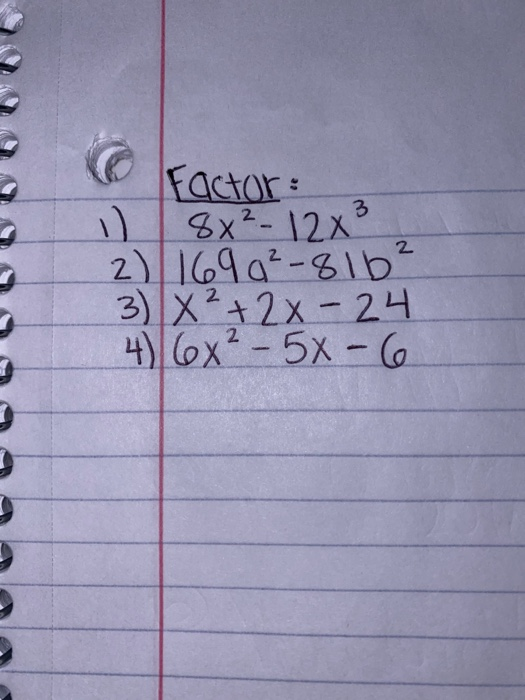 Factor:
1) 8x² - 12x³
2) 169a² - 81b²
3) x² + 2x - 24
4) 6x² - 5x - 6